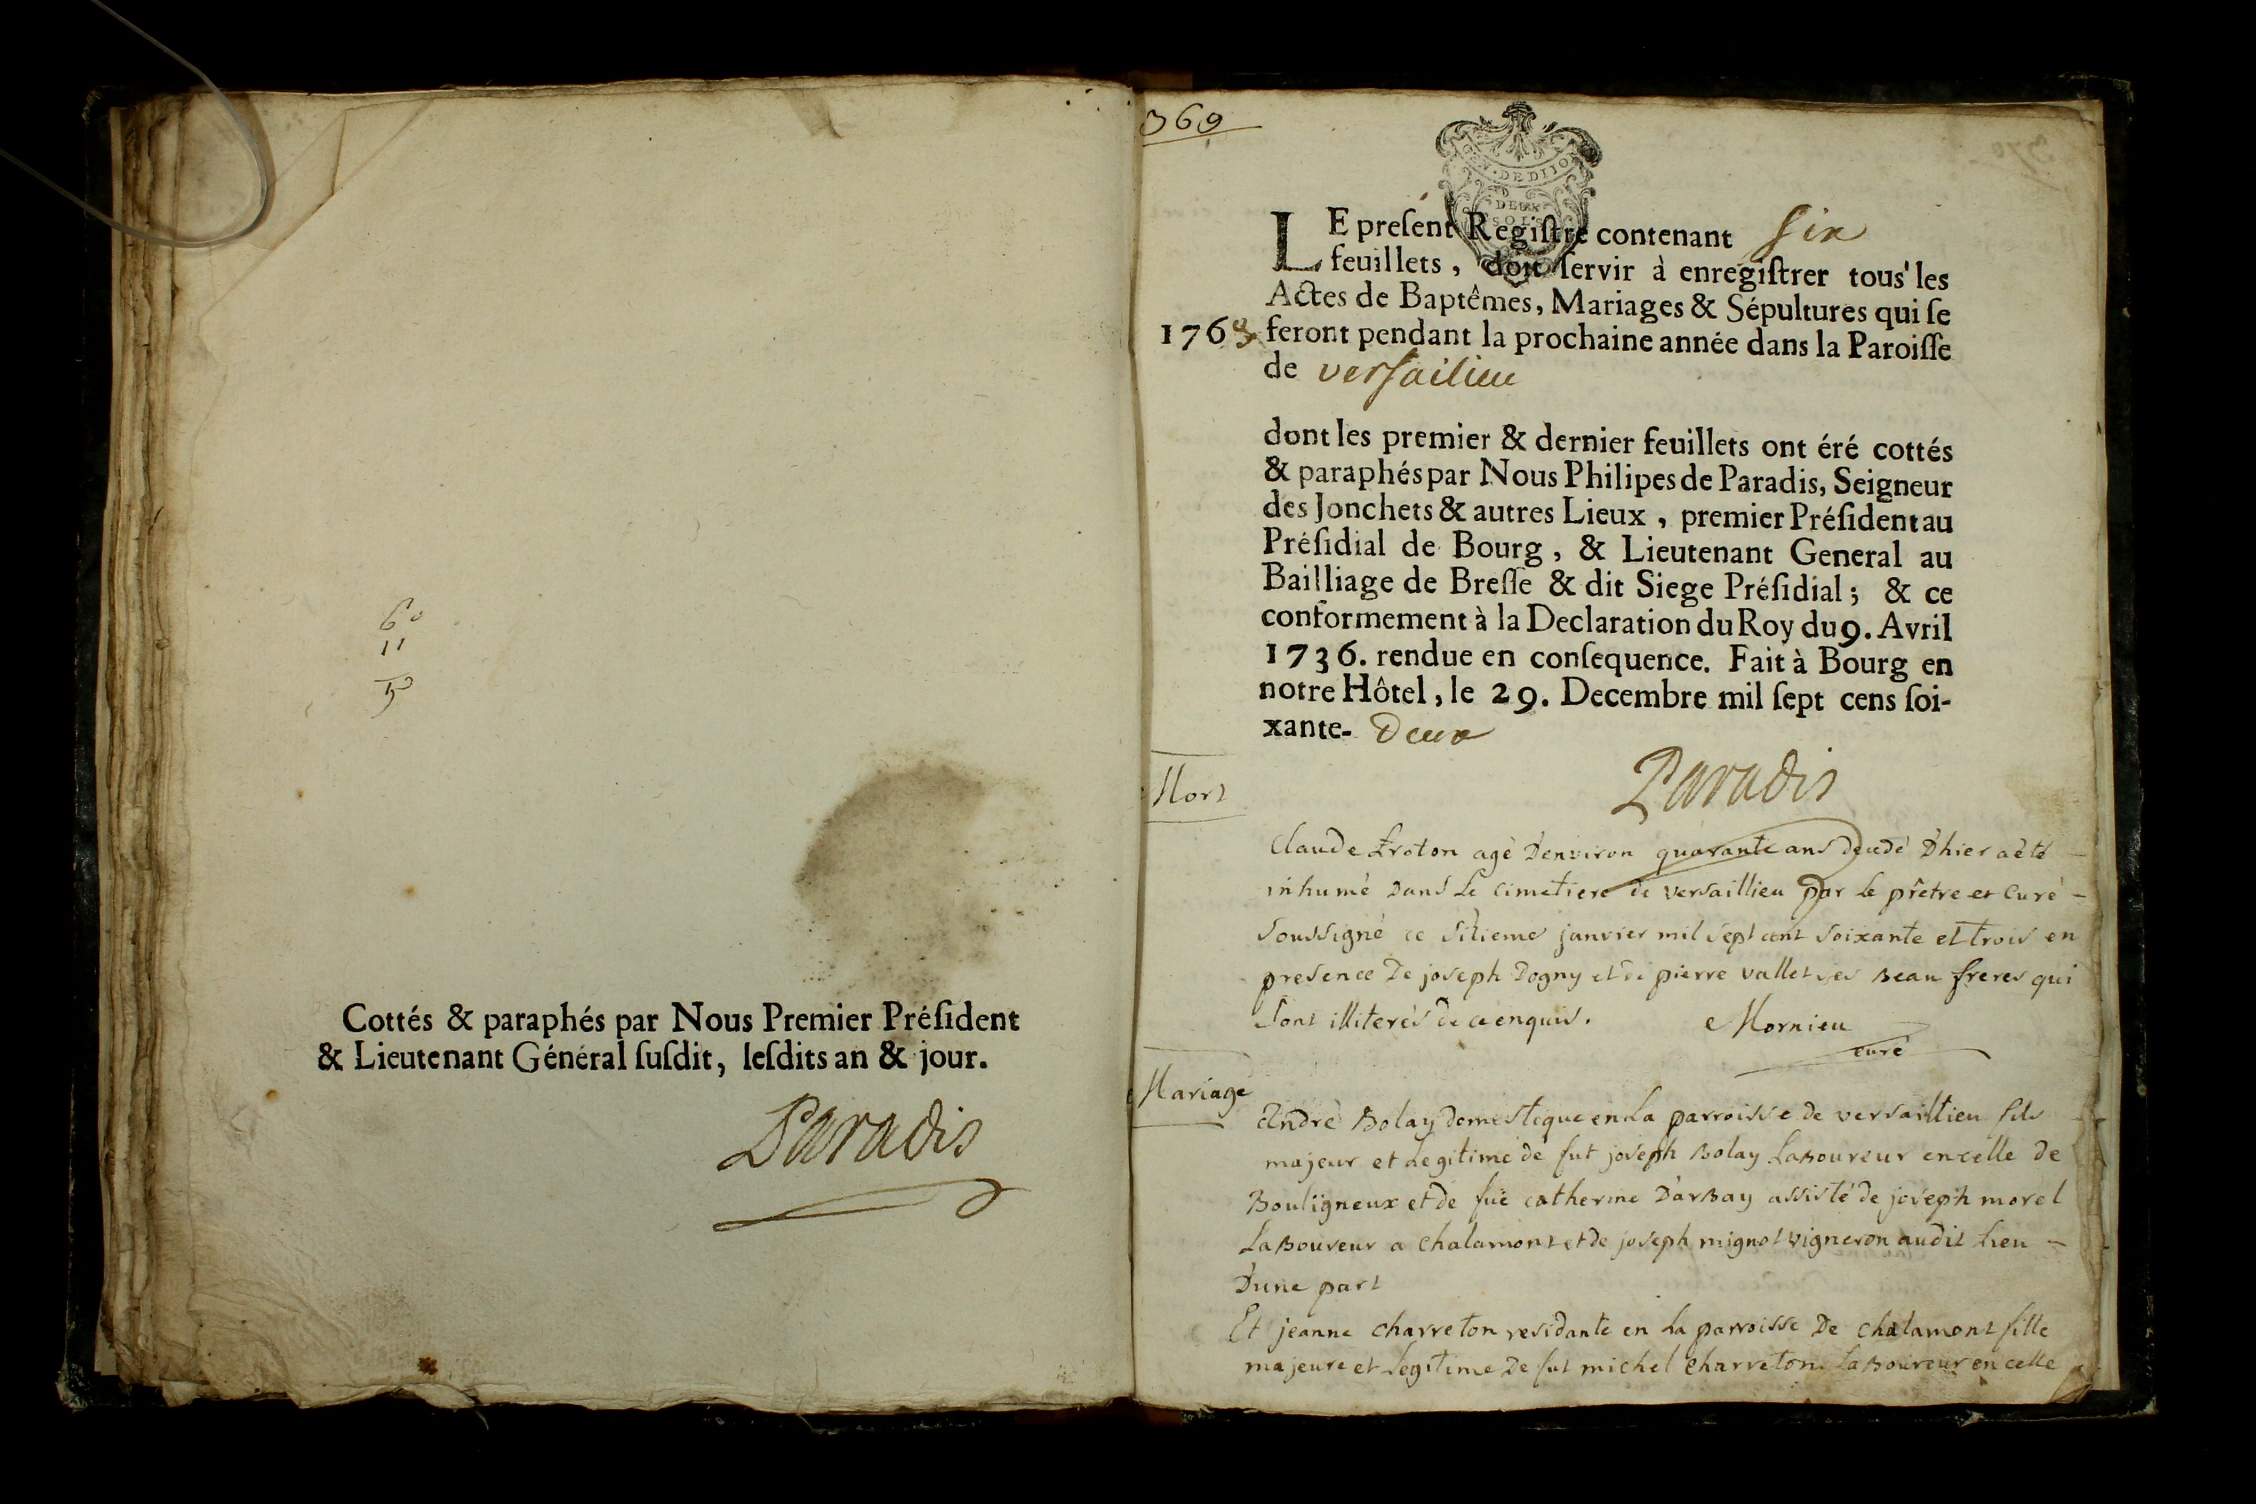 60
11
Cottés & paraphés par Nous Premier Préſident
& Lieutenant Général ſuſdit, leſdits an & jour.
Paradis
369
GEN · DE DIJON
DEUX
SOLS
LE preſent Regiſtre contenant six
feuillets, doit ſervir à enregiſtrer tous les
Actes de Baptêmes, Mariages & Sépultures qui ſe
1763 feront pendant la prochaine année dans la Paroiſſe
de versailieu
dont les premier & dernier feuillets ont éré cottés
& paraphés par Nous Philipes de Paradis, Seigneur
des Jonchets & autres Lieux, premier Préſident au
Préſidial de Bourg, & Lieutenant General au
Bailliage de Breſſe & dit Siege Préſidial; & ce
conformement à la Declaration du Roy du 9. Avril
1736. rendue en conſequence. Fait à Bourg en
notre Hôtel, le 29. Decembre mil ſept cens ſoi-
xante- Deux
Paradis
Mort
Claude agè D'environ quarante ans Dècedè D'hier a ètè
inhumè Dans Le cimetiere de versaillieu par Le prêtre et Curè
soussigné ce sixieme janvier mil sept cent soixante et trois en
presence De joseph Dogny et de pierre vallet ses Beau freres qui
sont illiterès de ce enquis. Mornieu
curé
Mariage
Andrè Bolay domestique en La parroisse de versaillieu fils
majeur et Legitime de fut joseph Bolay Laboureur en celle de
Bouligneux et de fuë catherine D'arbay assisté de joseph morel
Laboureur a chalamont et de joseph mignot vigneron audit Lieu
D'une part
Et jeanne charreton residante en La parroisse De chalamont fille
majeure et Legitime De fut michel charreton Laboureur en celle